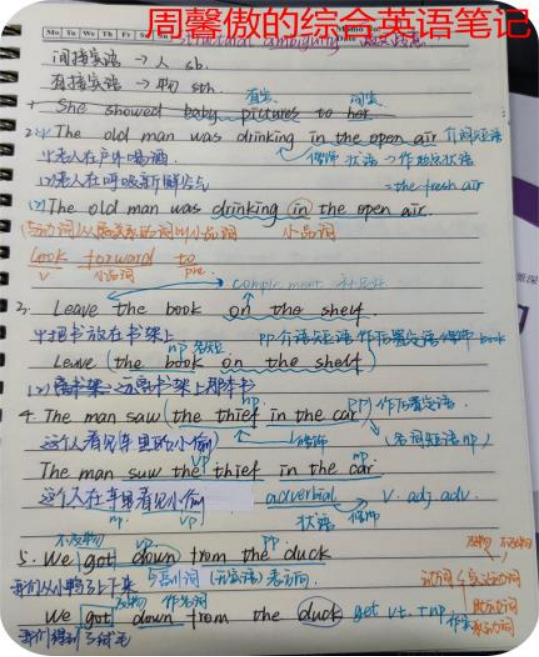 周馨傲的综合英语笔记
Mo Tu We Th Fr Sa Su
Structural ambiguity
间接宾语 → 人 sb.
直接宾语 → 物 sth.
直宾 间宾
1. She showed baby pictures to her.
2. (1) The old man was drinking in the open air 介词短语
(1)老人在户外喝酒. 修饰 状语 → 作地点状语
(2)老人在呼吸新鲜空气 = the fresh air
(2) The old man was drinking (in) the open air.
小品词
look forward to
v 小品词 pre.
complement 补足语
3. Leave the book on the shelf.
(1)把书放在书架上 PP 介词短语作后置定语修饰 book
np 名短
Leave (the book on the shelf)
书架上那本书
np. PP 作后置定语.
4. The man saw (the thief in the car)
这个人看见车里的小偷 修饰 (名词短语 np)
vp np.
The man saw the thief in the car.
这个人在车里看见小偷 adverbial v. adj adv.
np. vp 状语 修饰
不及物 vp. pp.
5. We got down from the duck
我们从小鸭子上下来 副词 (无宾语) 表方向.
及物 不及物
动词 实义动词
助动词
系动词
及物 作名词
We got down from the duck get vt. + np 作宾
我们得到了绒毛